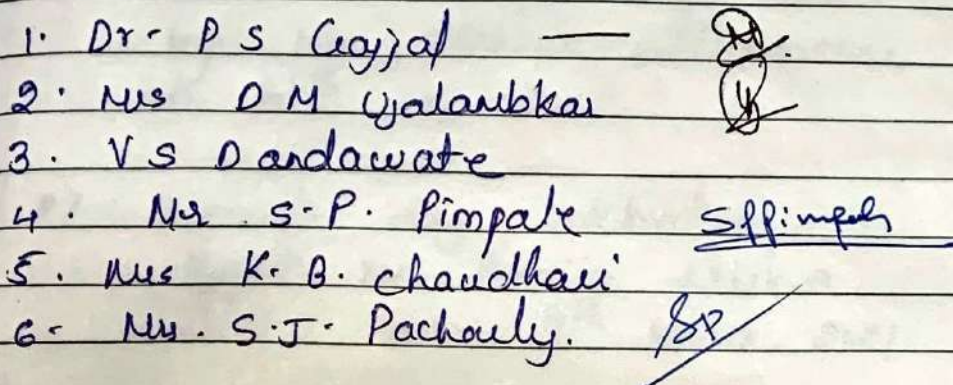 1. Dr. P S Gajjal —
2. Mrs D M Yalambkar
3. V S Dandawate
4. Mr. S.P. Pimpale SPPimpale
5. Mrs K. B. Chaudhari
6. Mr. S.J. Pachouly. SP